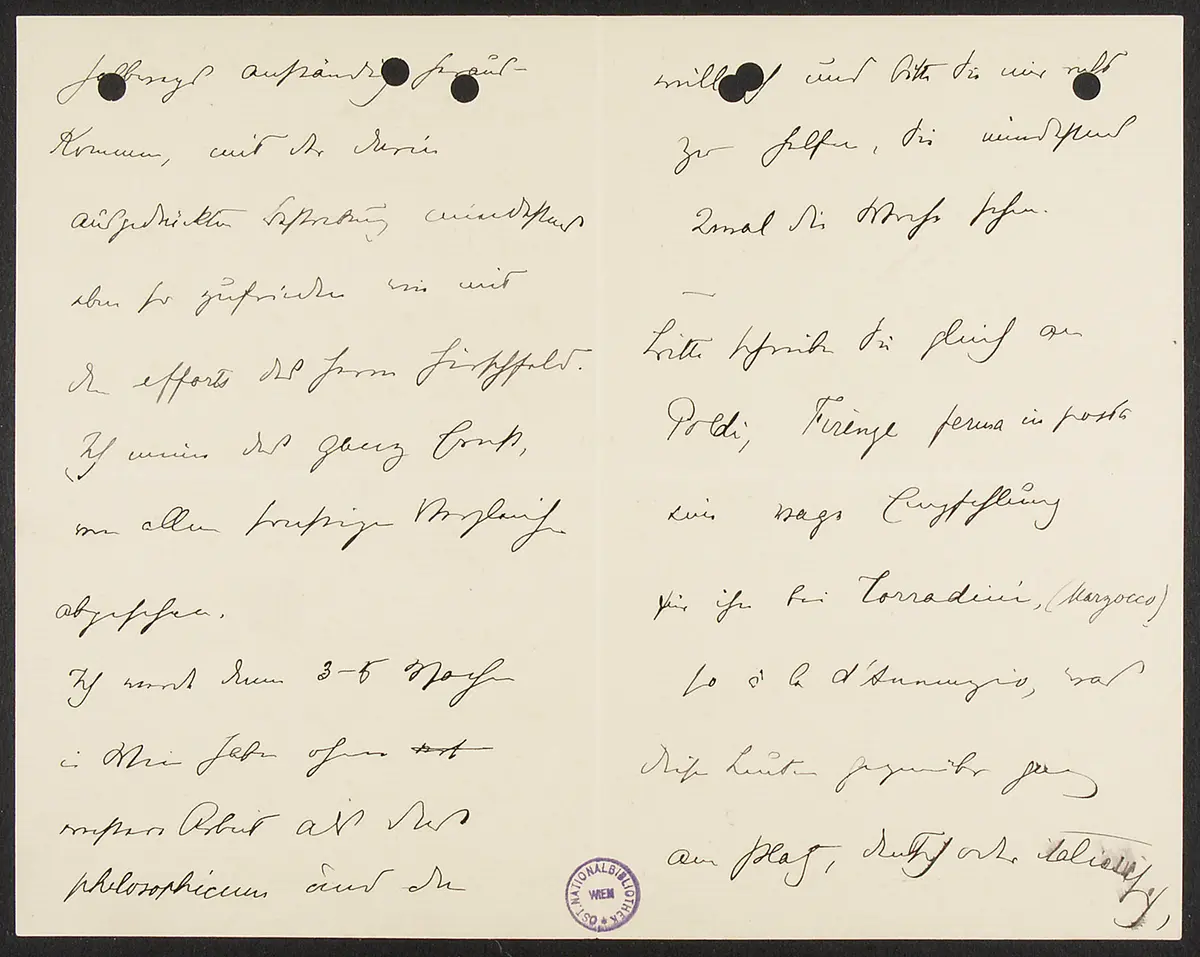 halbwegs anständig heraus-
kommen, mit der darin
ausgedrückten Bestrebung mindestens
eben so zufrieden wie mit
den efforts des Herrn Hirschfeld.
Ich meine das ganz Ernst,
von allen sonstigen Vergleichen
abgesehen.
Ich werde dann 3–5 Wochen
in Wien haben ohne
weitere Arbeit als das
philosophicum und den
will und bitte Sie mir
zu helfen, Sie mindestens
2mal die Woche sehen.
—
Bitte schreiben Sie gleich an
Poldi, Firenze ferma in posta
eine vage Empfehlung
für ihn bei Corradini, (Marzocco)
so à la d'Annunzio, was
diesen Leuten gegenüber ganz
am Platz, deutsch oder italienisch,
ÖST. NATIONALBIBLIOTHEK
WIEN